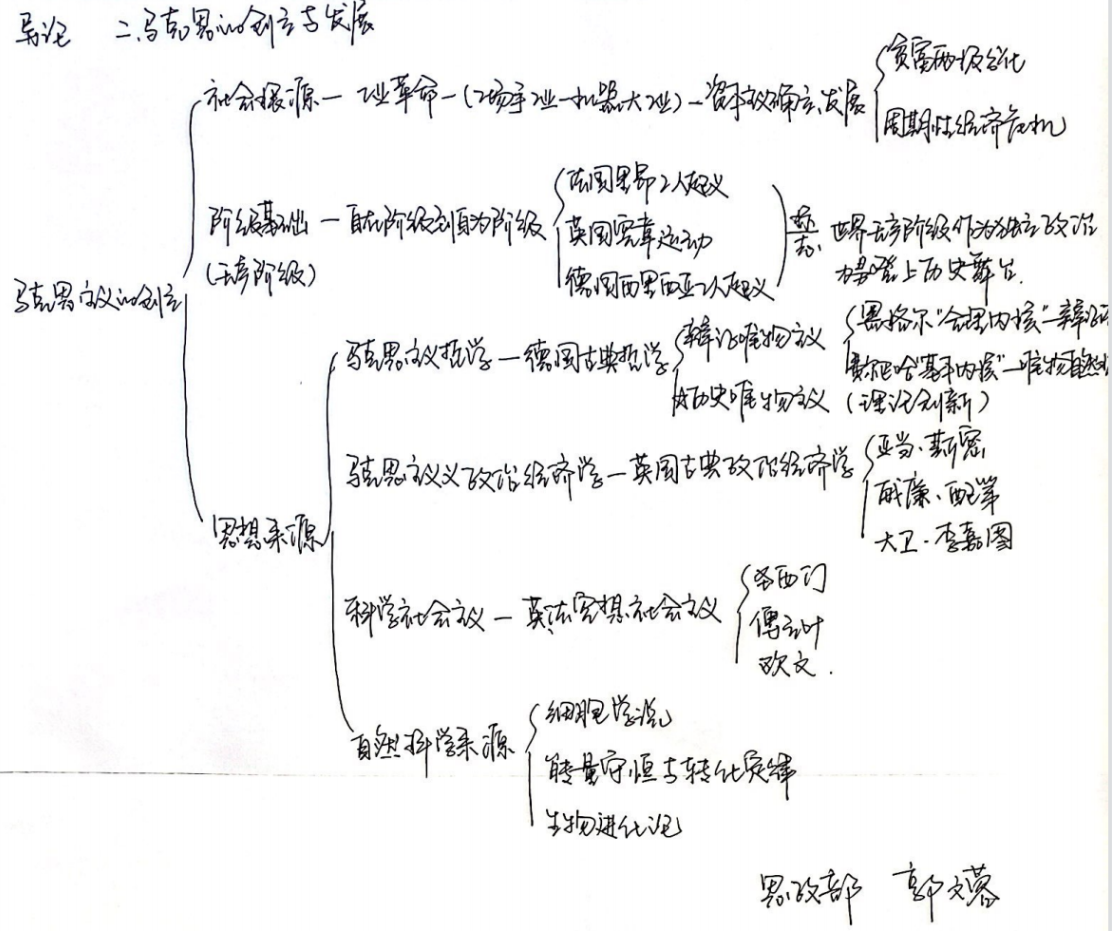 导论 二.马克思的创立与发展
马克思主义的创立
社会根源—工业革命—(工场手工业—机器大工业)—资本主义确立、发展
贫富两极分化
周期性经济危机
阶级基础—自在阶级到自为阶级
(无产阶级)
法国里昂工人起义
英国宪章运动
德国西里西亚工人起义
标志:
世界无产阶级作为独立政治
力量登上历史舞台.
思想来源
马克思主义哲学—德国古典哲学
辩证唯物主义
历史唯物主义(理论创新)
黑格尔"合理内核"—辩证
费尔巴哈"基本内核"—唯物自然
马克思主义政治经济学—英国古典政治经济学
亚当·斯密
威廉·配第
大卫·李嘉图
科学社会主义—英法空想社会主义
圣西门
傅立叶
欧文.
自然科学来源
细胞学说
能量守恒与转化定律
生物进化论
思政部 郭文蓉